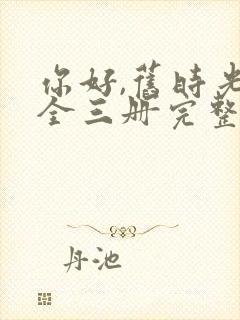 你好,旧时光
全三册完整
丹池